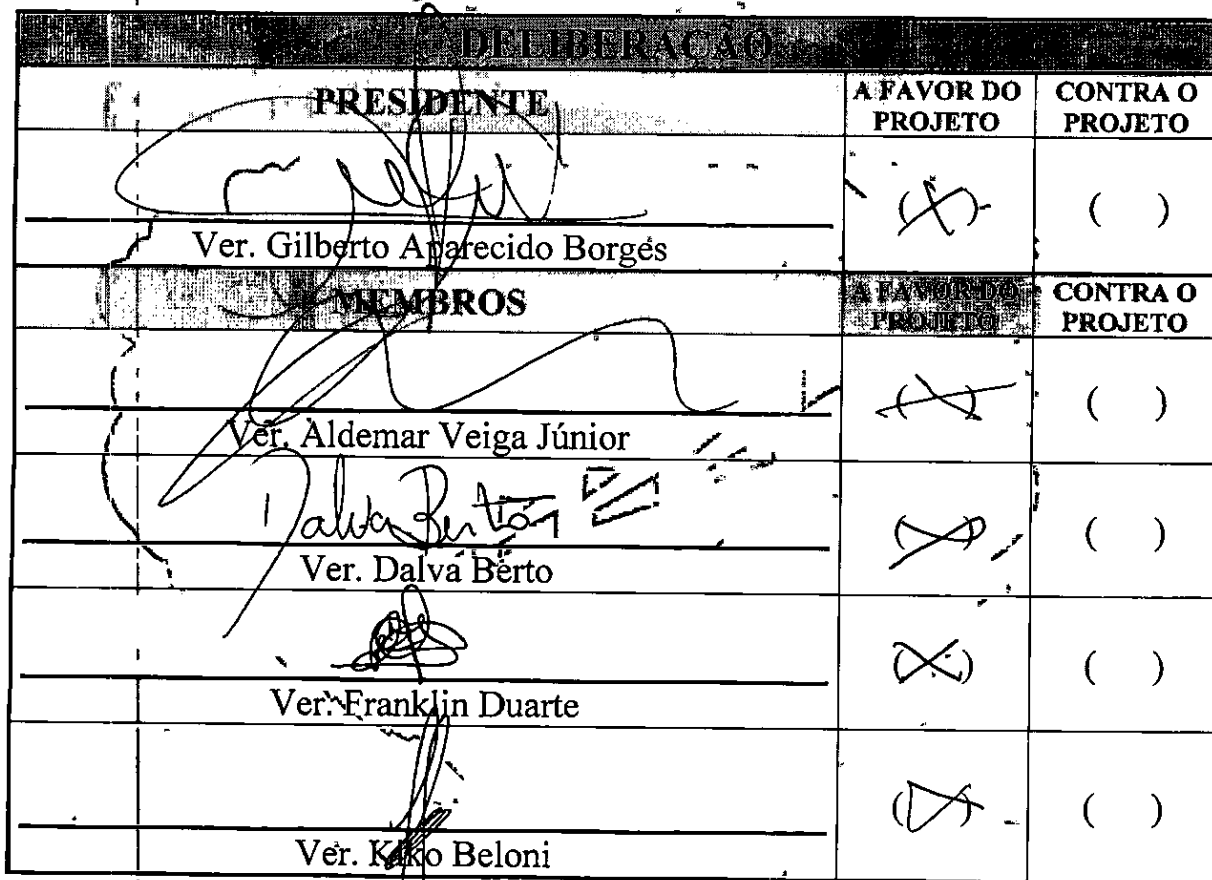 DELIBERAÇÃO
PRESIDENTE A FAVOR DO PROJETO CONTRA O PROJETO
(X) ( )
Ver. Gilberto Aparecido Borges
MEMBROS A FAVOR DO PROJETO CONTRA O PROJETO
(X) ( )
Ver. Aldemar Veiga Júnior
Dalva Berto (X) ( )
Ver. Dalva Berto
(X) ( )
Ver. Franklin Duarte
(X) ( )
Ver. Kiko Beloni